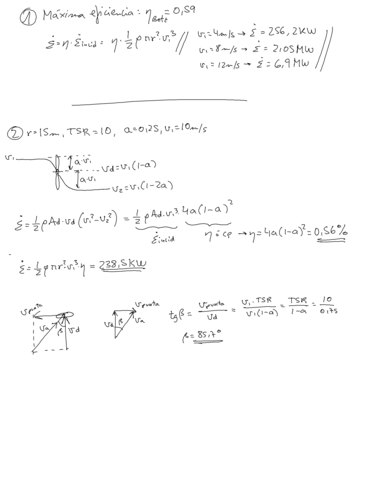 ① Máxima eficiencia: η_Betz = 0,59
Ė = η · Ė_incid = η · 1/2 ρ π r² v₁³ // v₁ = 4 m/s → Ė = 256,2 kW
v₁ = 8 m/s → Ė = 2,05 MW
v₁ = 12 m/s → Ė = 6,9 MW
② r = 15 m, TSR = 10, a = 0,25, v₁ = 10 m/s
v₁ a·v₁
vd = v₁(1-a)
a·v₁
v₂ = v₁(1-2a)
Ė = 1/2 ρ Ad·vd (v₁² - v₂²) = 1/2 ρ Ad·v₁³ 4a(1-a)²
Ė_incid η ó cp → η = 4a(1-a)² = 0,56%
Ė = 1/2 ρ π r² v₁³ η = 238,5 kW
v_punta va β vd
v_punta vd β va
tg β = v_punta/vd = v₁·TSR/v₁(1-a) = TSR/1-a = 10/0,75
β = 85,7°